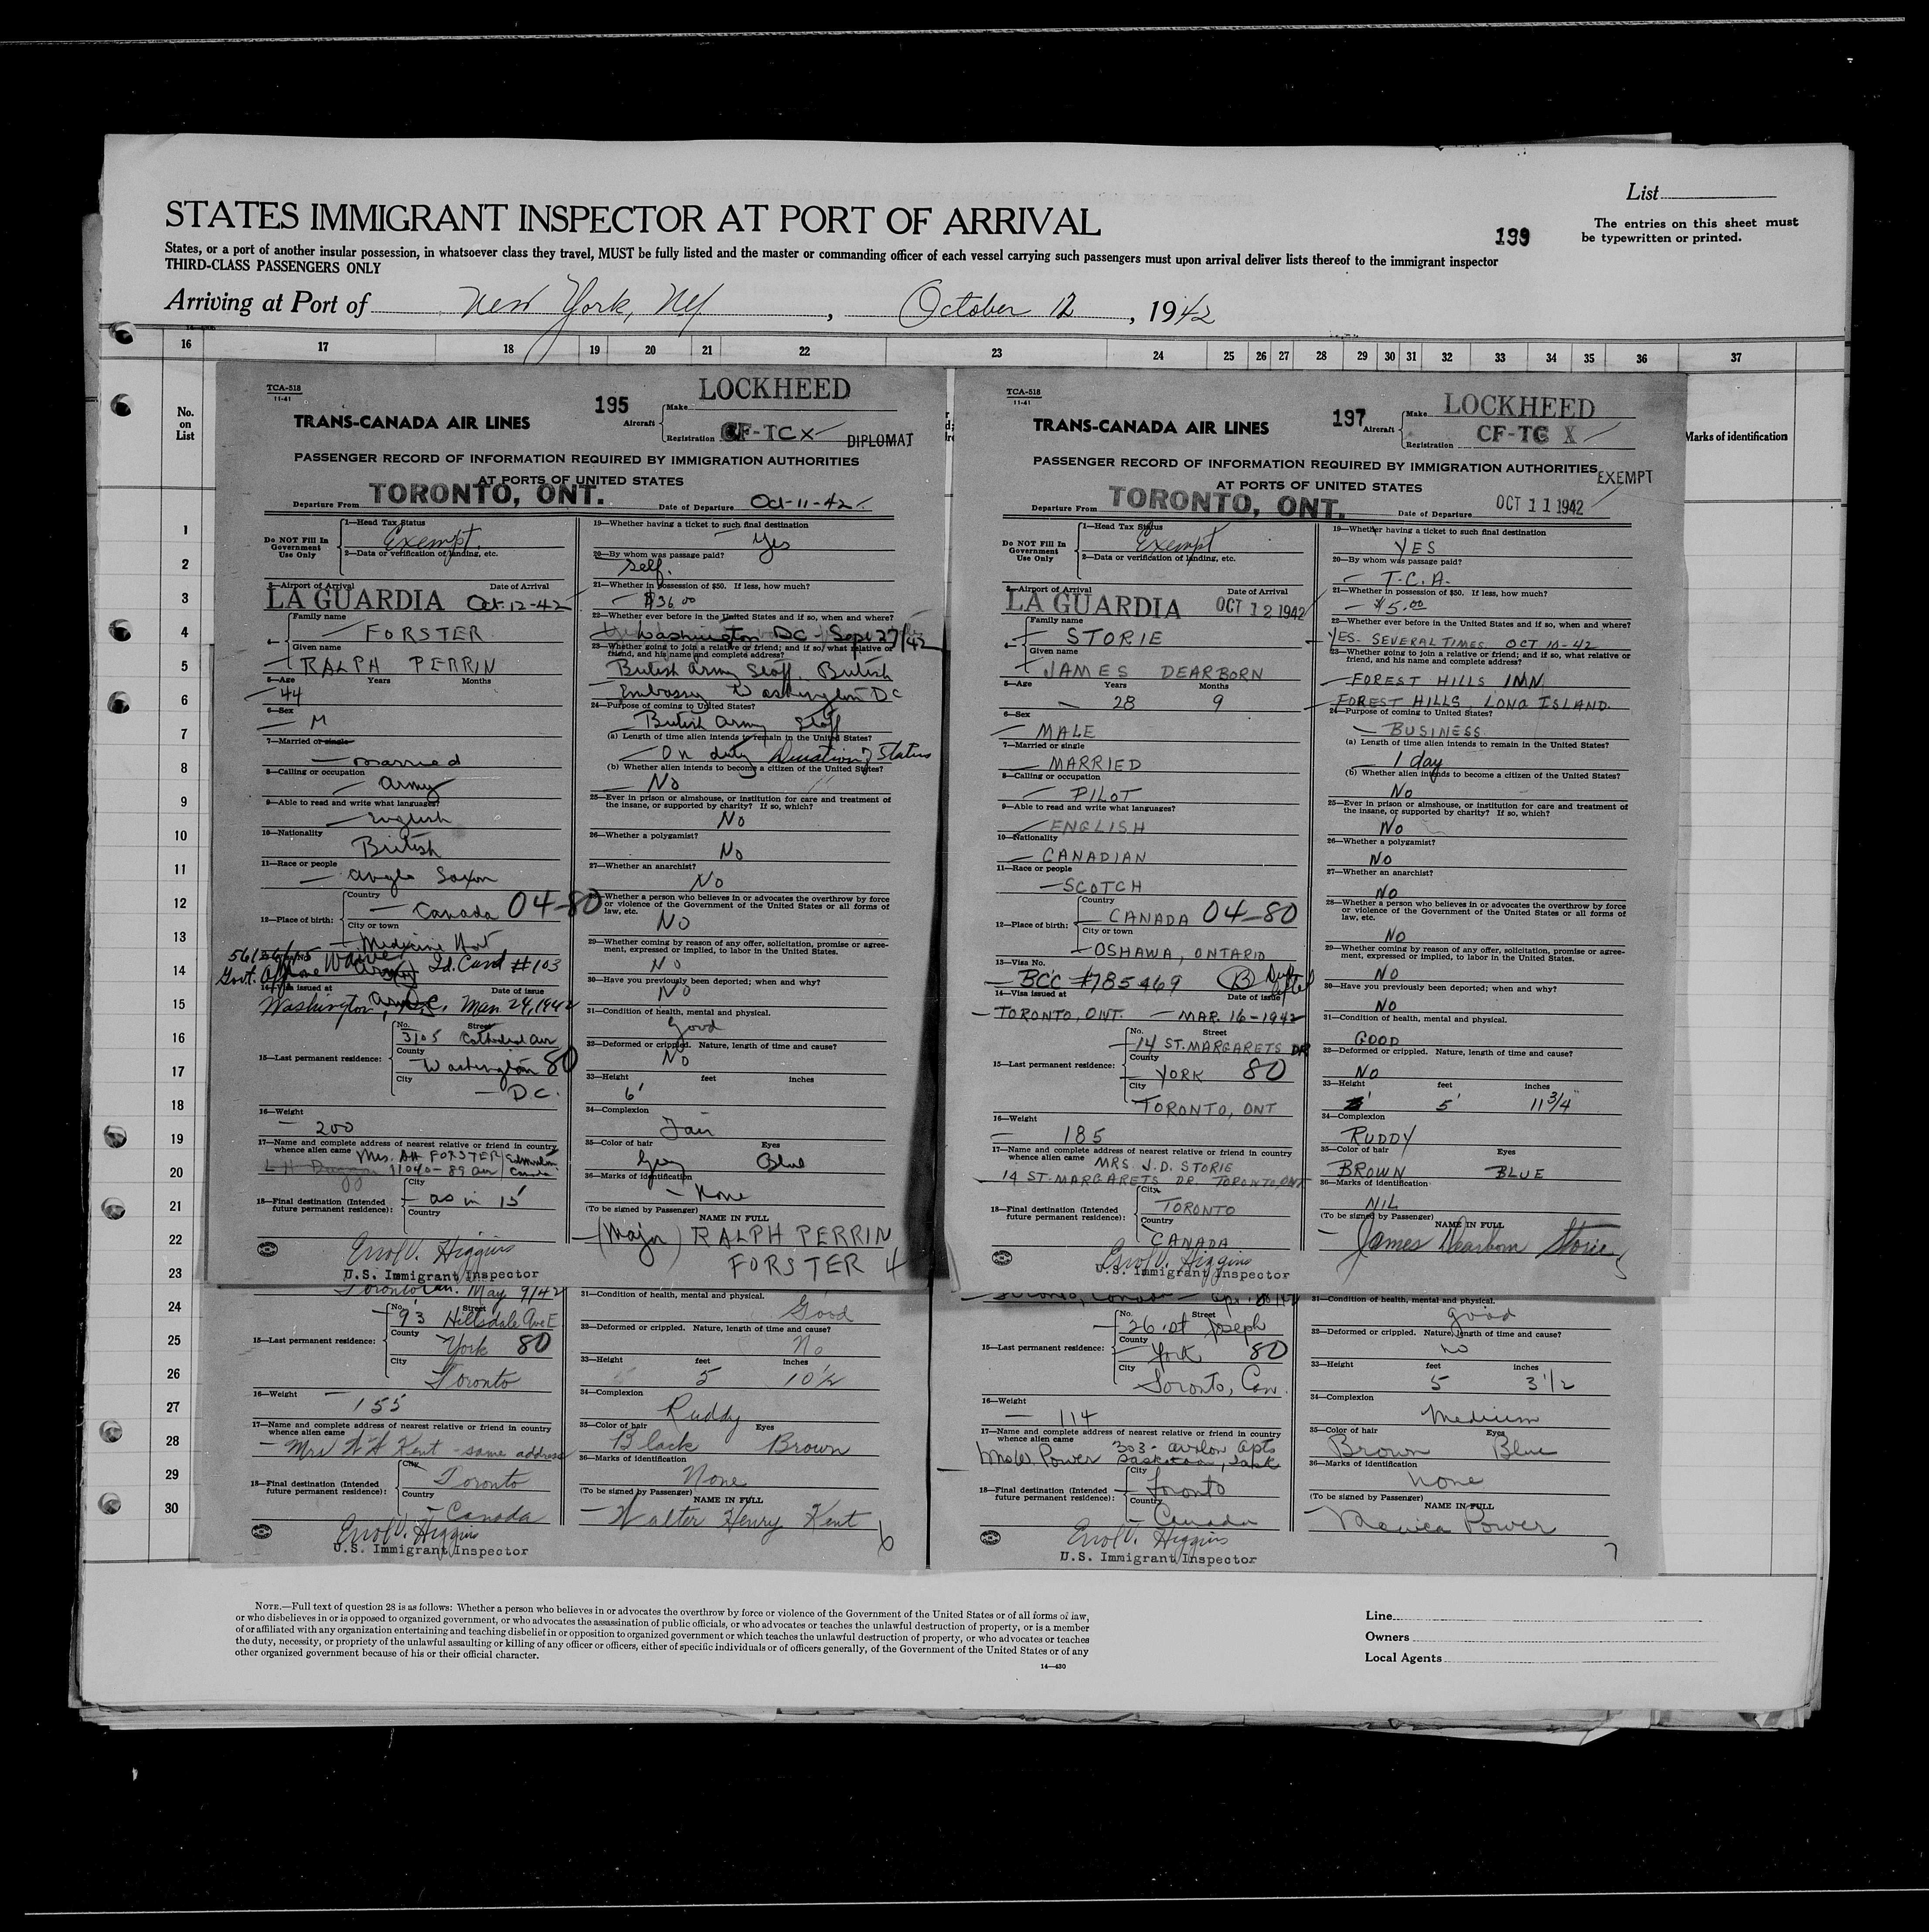 List
STATES IMMIGRANT INSPECTOR AT PORT OF ARRIVAL
The entries on this sheet must
be typewritten or printed.
199
States, or a port of another insular possession, in whatsoever class they travel, MUST be fully listed and the master or commanding officer of each vessel carrying such passengers must upon arrival deliver lists thereof to the immigrant inspector
THIRD-CLASS PASSENGERS ONLY
Arriving at Port of New York, NY, October 12, 1942
16 17 18 19 20 21 22 23 24 25 26 27 28 29 30 31 32 33 34 35 36 37
No.
on
List
Marks of identification
1
2
3
4
5
6
7
8
9
10
11
12
13
14
15
16
17
18
19
20
21
22
23
24
25
26
27
28
29
30
TCA-518
11-41
TRANS-CANADA AIR LINES
195
Aircraft
Make LOCKHEED
Registration CF-TCX
DIPLOMAT
PASSENGER RECORD OF INFORMATION REQUIRED BY IMMIGRATION AUTHORITIES
AT PORTS OF UNITED STATES
Departure From TORONTO, ONT. Date of Departure Oct-11-42
Do NOT Fill In
Government
Use Only
1—Head Tax Status
Exempt.
2—Data or verification of landing, etc.
3—Airport of Arrival Date of Arrival
LA GUARDIA Oct-12-42
4—
Family name
FORSTER
Given name
RALPH PERRIN
5—Age Years Months
44
6—Sex
M
7—Married or single
Married
8—Calling or occupation
Army
9—Able to read and write what languages?
English
10—Nationality
British
11—Race or people
Anglo Saxon
12—Place of birth:
Country
Canada 04-80
City or town
Medicine Hat
Id. Card #103
14—Visa issued at Date of issue
Washington, D.C. Mar. 24, 1942
15—Last permanent residence:
No. Street
3105 Cathedral Ave
County
Washington 80
City
D C.
16—Weight
200
17—Name and complete address of nearest relative or friend in country
whence alien came Mrs. AH FORSTER
11040-89 Ave Edmonton Canada
18—Final destination (Intended
future permanent residence):
City
as in 15
Country
Errol V. Higgins
U.S. Immigrant Inspector
19—Whether having a ticket to such final destination
Yes
20—By whom was passage paid?
Self.
21—Whether in possession of $50. If less, how much?
$36.00
22—Whether ever before in the United States and if so, when and where?
Washington DC - Sept 27/42
23—Whether going to join a relative or friend; and if so, what relative or
friend, and his name and complete address?
British Army Staff British
Embassy Washington DC
24—Purpose of coming to United States?
British Army Staff
(a) Length of time alien intends to remain in the United States?
On duty Duration of Status
(b) Whether alien intends to become a citizen of the United States?
No
25—Ever in prison or almshouse, or institution for care and treatment of
the insane, or supported by charity? If so, which?
No
26—Whether a polygamist?
No
27—Whether an anarchist?
No
28—Whether a person who believes in or advocates the overthrow by force
or violence of the Government of the United States or all forms of
law, etc.
No
29—Whether coming by reason of any offer, solicitation, promise or agree-
ment, expressed or implied, to labor in the United States.
No
30—Have you previously been deported; when and why?
No
31—Condition of health, mental and physical.
Good
32—Deformed or crippled. Nature, length of time and cause?
No
33—Height feet inches
6'
34—Complexion
Fair
35—Color of hair Eyes
Grey Blue
36—Marks of identification
None
(To be signed by Passenger)
NAME IN FULL
(Major) RALPH PERRIN
FORSTER 4
TCA-518
11-41
TRANS-CANADA AIR LINES
197
Aircraft
Make LOCKHEED
Registration CF-TC X
PASSENGER RECORD OF INFORMATION REQUIRED BY IMMIGRATION AUTHORITIES
EXEMPT
AT PORTS OF UNITED STATES
Departure From TORONTO, ONT. Date of Departure OCT 11 1942
Do NOT Fill In
Government
Use Only
1—Head Tax Status
Exempt
2—Data or verification of landing, etc.
3—Airport of Arrival Date of Arrival
LA GUARDIA OCT 12 1942
4—
Family name
STORIE
Given name
JAMES DEARBORN
5—Age Years Months
28 9
6—Sex
MALE
7—Married or single
MARRIED
8—Calling or occupation
PILOT
9—Able to read and write what languages?
ENGLISH
10—Nationality
CANADIAN
11—Race or people
SCOTCH
12—Place of birth:
Country
CANADA 04-80
City or town
OSHAWA, ONTARIO
13—Visa No.
BCC #785469 B
14—Visa issued at Date of issue
TORONTO, ONT. — MAR. 16-1942
15—Last permanent residence:
No. Street
14 ST. MARGARETS DR
County
YORK 80
City
TORONTO, ONT
16—Weight
185
17—Name and complete address of nearest relative or friend in country
whence alien came MRS. J.D. STORIE
14 ST. MARGARETS DR. TORONTO, ONT
18—Final destination (Intended
future permanent residence):
City
TORONTO
Country
CANADA
Errol V. Higgins
U.S. Immigrant Inspector
19—Whether having a ticket to such final destination
YES
20—By whom was passage paid?
T.C.A.
21—Whether in possession of $50. If less, how much?
$5.00
22—Whether ever before in the United States and if so, when and where?
YES- SEVERAL TIMES OCT 10-42
23—Whether going to join a relative or friend; and if so, what relative or
friend, and his name and complete address?
FOREST HILLS INN
FOREST HILLS, LONG ISLAND.
24—Purpose of coming to United States?
BUSINESS
(a) Length of time alien intends to remain in the United States?
1 day
(b) Whether alien intends to become a citizen of the United States?
No
25—Ever in prison or almshouse, or institution for care and treatment of
the insane, or supported by charity? If so, which?
No
26—Whether a polygamist?
No
27—Whether an anarchist?
No
28—Whether a person who believes in or advocates the overthrow by force
or violence of the Government of the United States or all forms of
law, etc.
No
29—Whether coming by reason of any offer, solicitation, promise or agree-
ment, expressed or implied, to labor in the United States.
No
30—Have you previously been deported; when and why?
No
31—Condition of health, mental and physical.
GOOD
32—Deformed or crippled. Nature, length of time and cause?
No
33—Height feet inches
5' 11 3/4"
34—Complexion
RUDDY
35—Color of hair Eyes
BROWN BLUE
36—Marks of identification
NIL
(To be signed by Passenger)
NAME IN FULL
James Dearborn Storie
5
Toronto Can. May 9/42
15—Last permanent residence:
No. Street
93 Hillsdale Ave E
County
York 80
City
Toronto
16—Weight
155
17—Name and complete address of nearest relative or friend in country
whence alien came
Mrs W H Kent - same address
18—Final destination (Intended
future permanent residence):
City
Toronto
Country
Canada
Errol V. Higgins
U.S. Immigrant Inspector
31—Condition of health, mental and physical.
Good
32—Deformed or crippled. Nature, length of time and cause?
No
33—Height feet inches
5 10 1/2
34—Complexion
Ruddy
35—Color of hair Eyes
Black Brown
36—Marks of identification
None
(To be signed by Passenger)
NAME IN FULL
Walter Henry Kent
6
Toronto, Canada - Apr.
15—Last permanent residence:
No. Street
26 St Joseph
County
York 80
City
Toronto, Can.
16—Weight
114
17—Name and complete address of nearest relative or friend in country
whence alien came 303 - Avalon Apts
Power Saskatoon, Sask
18—Final destination (Intended
future permanent residence):
City
Toronto
Country
Canada
Errol V. Higgins
U.S. Immigrant Inspector
31—Condition of health, mental and physical.
Good
32—Deformed or crippled. Nature, length of time and cause?
No
33—Height feet inches
5 3 1/2
34—Complexion
Medium
35—Color of hair Eyes
Brown Blue
36—Marks of identification
None
(To be signed by Passenger)
NAME IN FULL
Monica Power
7
NOTE.—Full text of question 28 is as follows: Whether a person who believes in or advocates the overthrow by force or violence of the Government of the United States or of all forms of law,
or who disbelieves in or is opposed to organized government, or who advocates the assassination of public officials, or who advocates or teaches the unlawful destruction of property, or is a member
of or affiliated with any organization entertaining and teaching disbelief in or opposition to organized government or which teaches the unlawful destruction of property, or who advocates or teaches
the duty, necessity, or propriety of the unlawful assaulting or killing of any officer or officers, either of specific individuals or of officers generally, of the Government of the United States or of any
other organized government because of his or their official character.
14—430
Line
Owners
Local Agents